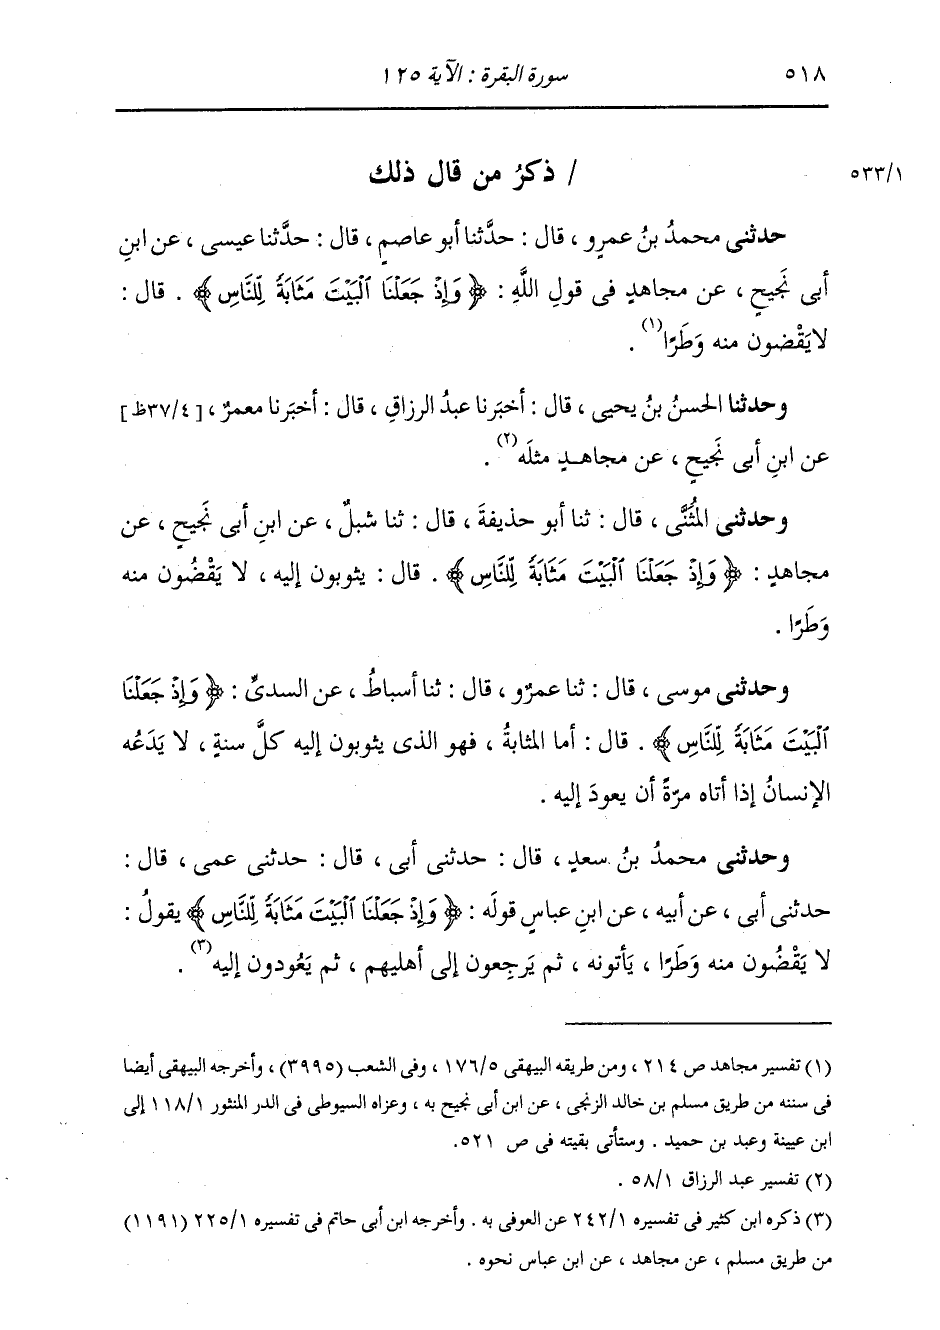 ٥١٨ سورة البقرة : الآية ١٢٥
٥٣٣/١ / ذكرُ من قال ذلك
حدثنى محمدُ بنُ عمرٍو ، قال : حدَّثنا أبو عاصمٍ ، قال : حدَّثنا عيسى ، عن ابنِ
أبى نَجيحٍ ، عن مجاهدٍ فى قولِ اللَّهِ : ﴿ وَإِذْ جَعَلْنَا ٱلْبَيْتَ مَثَابَةً لِّلنَّاسِ ﴾ . قال :
لا يَقْضون منه وَطَرًا(١) .
وحدثنا الحسنُ بنُ يحيى ، قال : أخبَرنا عبدُ الرزاقِ ، قال : أخبَرنا معمرٌ ، [٣٧/٤ظ]
عن ابنِ أبى نَجيحٍ ، عن مجاهـدٍ مثلَه(٢) .
وحدثنى المُثَنَّى ، قال : ثنا أبو حذيفةَ ، قال : ثنا شبلٌ ، عن ابنِ أبى نَجيحٍ ، عن
مجاهدٍ : ﴿ وَإِذْ جَعَلْنَا ٱلْبَيْتَ مَثَابَةً لِّلنَّاسِ ﴾ . قال : يثوبون إليه ، لا يَقْضُون منه
وَطَرًا .
وحدثنى موسى ، قال : ثنا عمرٌو ، قال : ثنا أسباطُ ، عن السدىِّ : ﴿ وَإِذْ جَعَلْنَا
ٱلْبَيْتَ مَثَابَةً لِّلنَّاسِ ﴾ . قال : أما المثابةُ ، فهو الذى يثوبون إليه كلَّ سنةٍ ، لا يَدَعُه
الإنسانُ إذا أتاه مرّةً أن يعودَ إليه .
وحدثنى محمدُ بنُ سعدٍ ، قال : حدثنى أبى ، قال : حدثنى عمى ، قال :
حدثنى أبى ، عن أبيه ، عن ابنِ عباسٍ قولَه : ﴿ وَإِذْ جَعَلْنَا ٱلْبَيْتَ مَثَابَةً لِّلنَّاسِ ﴾ يقولُ :
لا يَقْضُون منه وَطَرًا ، يَأتونه ، ثم يَرجعون إلى أهليهم ، ثم يَعُودون إليه(٣) .
(١) تفسير مجاهد ص ٢١٤ ، ومن طريقه البيهقى ١٧٦/٥ ، وفى الشعب (٣٩٩٥) ، وأخرجه البيهقى أيضا
فى سننه من طريق مسلم بن خالد الزنجى ، عن ابن أبى نجيح به ، وعزاه السيوطى فى الدر المنثور ١١٨/١ إلى
ابن عيينة وعبد بن حميد . وستأتى بقيته فى ص ٥٢١.
(٢) تفسير عبد الرزاق ٥٨/١ .
(٣) ذكره ابن كثير فى تفسيره ٢٤٢/١ عن العوفى به . وأخرجه ابن أبى حاتم فى تفسيره ٢٢٥/١ (١١٩١)
من طريق مسلم ، عن مجاهد ، عن ابن عباس نحوه .